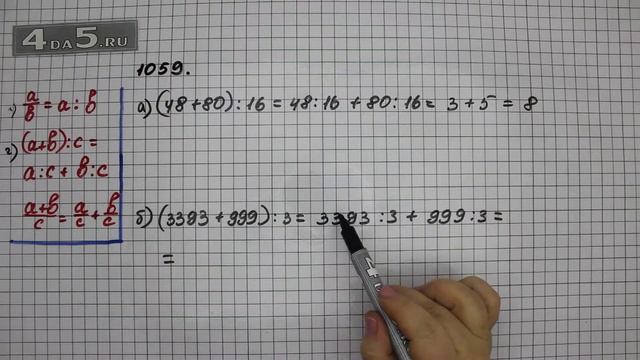 4DA5.RU
1059.
1) a/b = a : b
2) (a+b) : c =
a : c + b : c
a+b/c = a/c + b/c
а) (48+80) : 16 = 48 : 16 + 80 : 16 = 3 + 5 = 8
б) (3393 + 999) : 3 = 3393 : 3 + 999 : 3 =
=